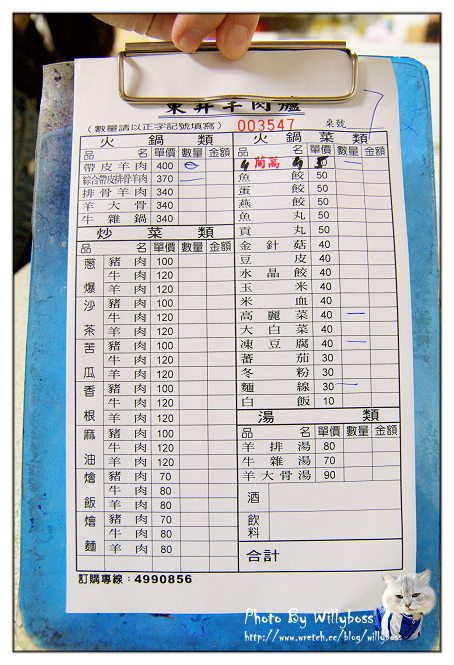 東昇羊肉爐
(數量請以正字記號填寫) 003547 桌號 7
火鍋類
品名 單價 數量 金額
帶皮羊肉 400
綜合帶皮排骨羊肉 370
排骨羊肉 340
羊大骨 340
牛雜鍋 340
炒菜類
品名 單價 數量 金額
蔥爆
豬肉 100
牛肉 120
羊肉 120
沙茶
豬肉 100
牛肉 120
羊肉 120
苦瓜
豬肉 100
牛肉 120
羊肉 120
香根
豬肉 100
牛肉 120
羊肉 120
麻油
豬肉 100
牛肉 120
羊肉 120
燴飯
豬肉 70
牛肉 80
羊肉 80
燴麵
豬肉 70
牛肉 80
羊肉 80
火鍋菜類
品名 單價 數量 金額
茼萵
魚餃 50
蛋餃 50
燕餃 50
魚丸 50
貢丸 50
金針菇 40
豆皮 40
水晶餃 40
玉米 40
米血 40
高麗菜 40 一
大白菜 40
凍豆腐 40 一
蕃茄 30
冬粉 30
麵線 30 一
白飯 10
湯類
品名 單價 數量 金額
羊排湯 80
牛雜湯 70
羊大骨湯 90
酒
飲料
合計
訂購專線：4990856
Photo By Willyboss
http://www.wretch.cc/blog/willyboss